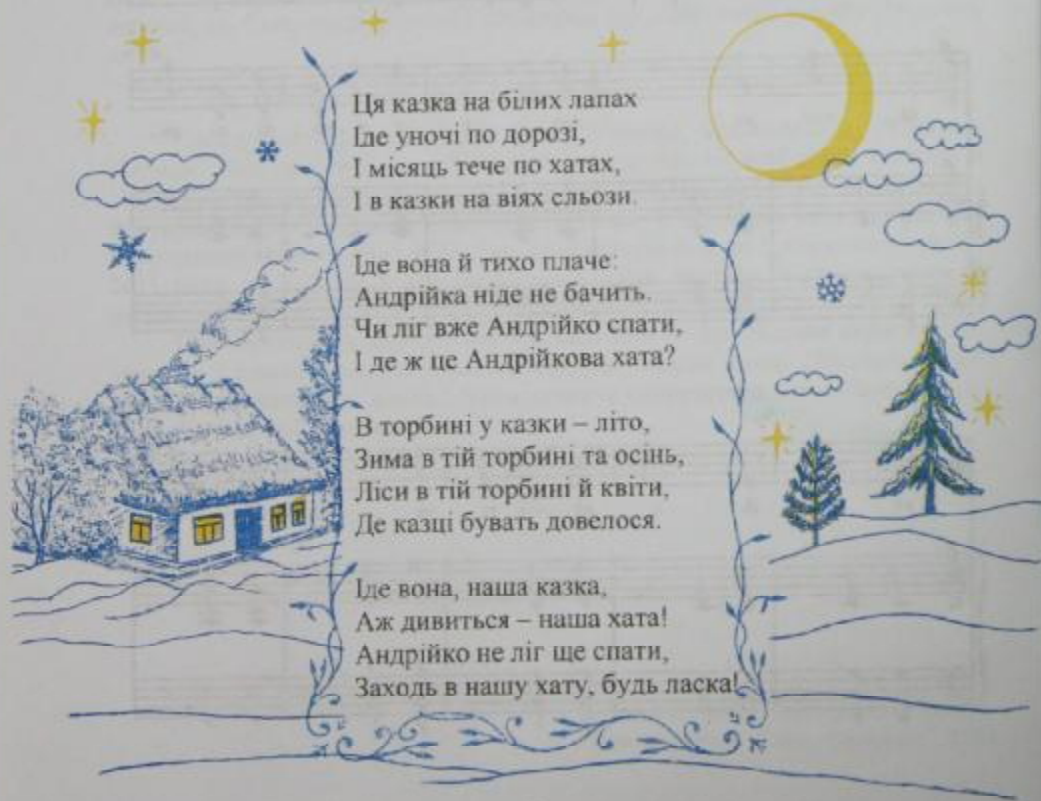 Ця казка на білих лапах
Іде уночі по дорозі,
І місяць тече по хатах,
І в казки на віях сльози.
Іде вона й тихо плаче:
Андрійка ніде не бачить.
Чи ліг вже Андрійко спати,
І де ж це Андрійкова хата?
В торбині у казки – літо,
Зима в тій торбині та осінь,
Ліси в тій торбині й квіти,
Де казці бувать довелося.
Іде вона, наша казка,
Аж дивиться – наша хата!
Андрійко не ліг ще спати,
Заходь в нашу хату, будь ласка!